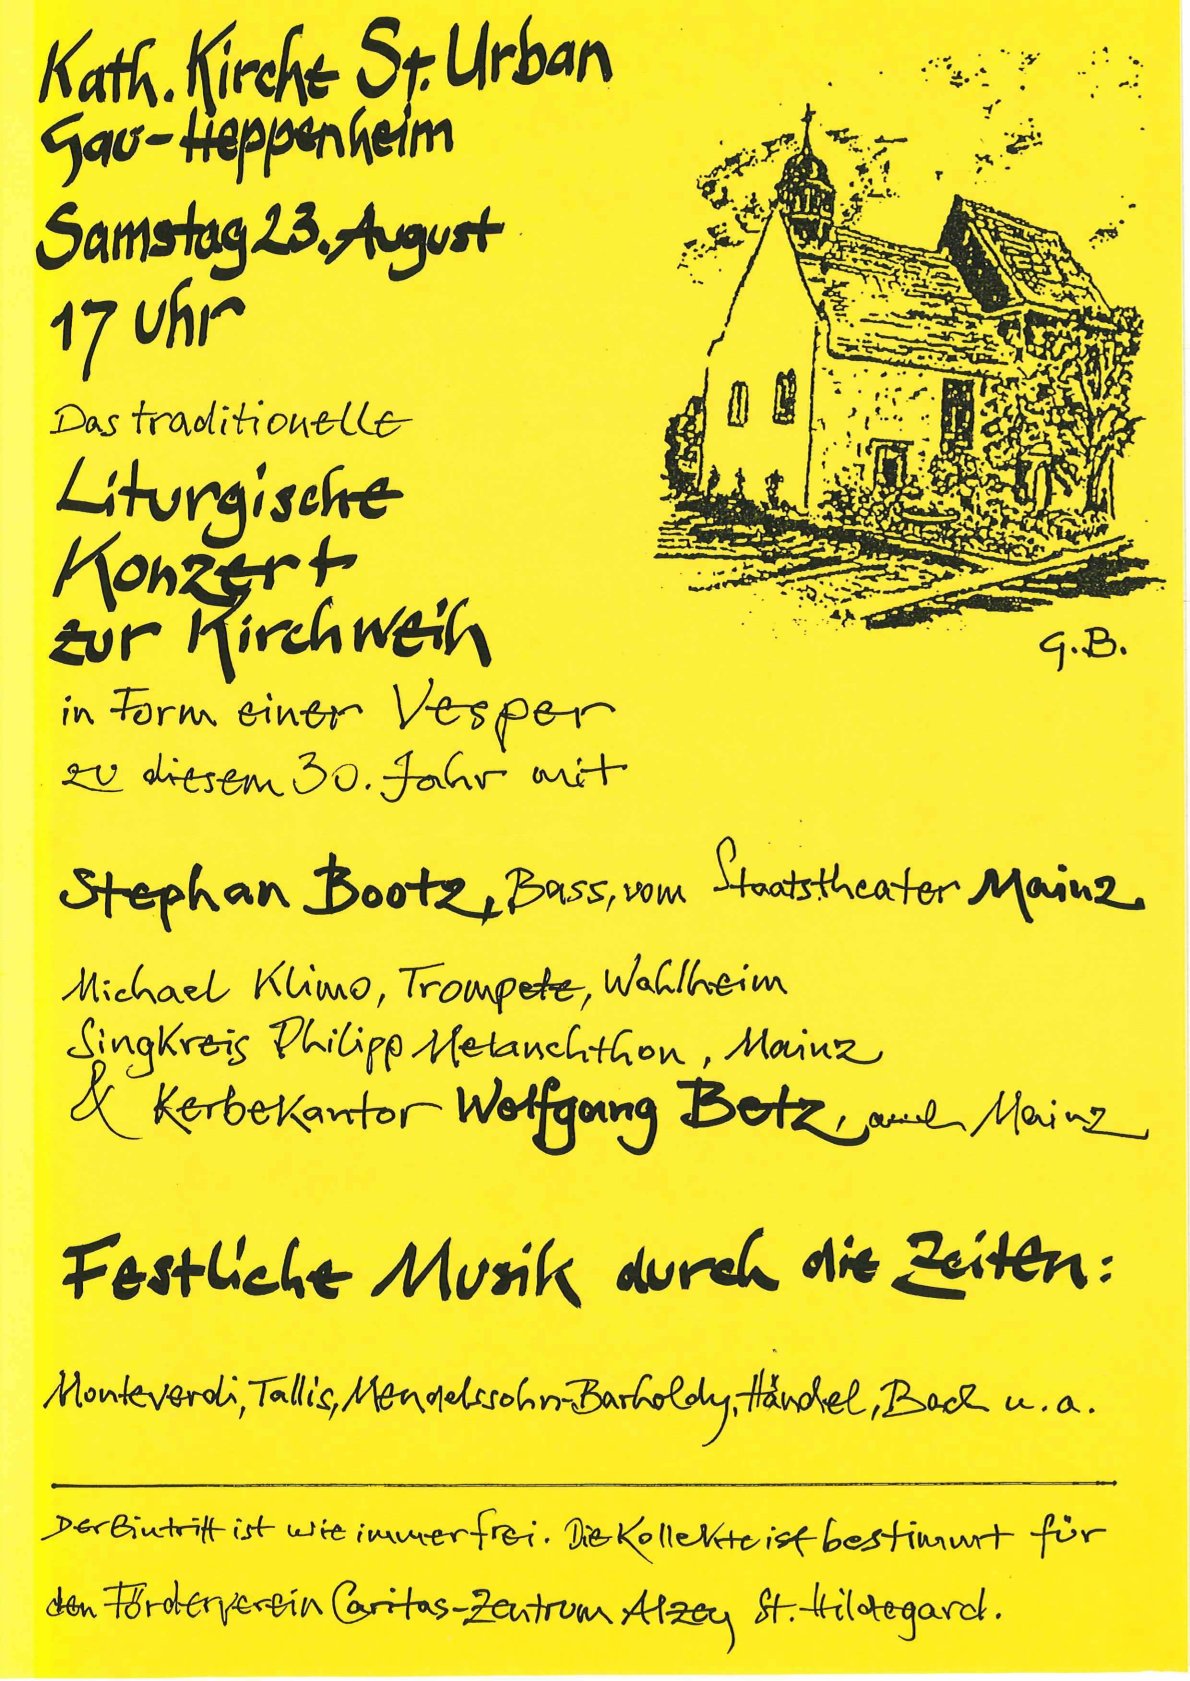 Kath. Kirche St. Urban
Gau-Heppenheim
Samstag 23. August
17 Uhr
Das traditionelle
Liturgische
Konzert
zur Kirchweih
G.B.
in Form einer Vesper
zu diesem 30. Jahr mit
Stephan Bootz, Bass, vom Staatstheater Mainz,
Michael Klimo, Trompete, Wahlheim
Singkreis Philipp Melanchthon, Mainz
& Kerbekantor Wolfgang Betz, auch Mainz
Festliche Musik durch die Zeiten:
Monteverdi, Tallis, Mendelssohn-Barholdy, Händel, Bach u. a.
Der Eintritt ist wie immer frei. Die Kollekte ist bestimmt für
den Förderverein Caritas-Zentrum Alzey St. Hildegard.